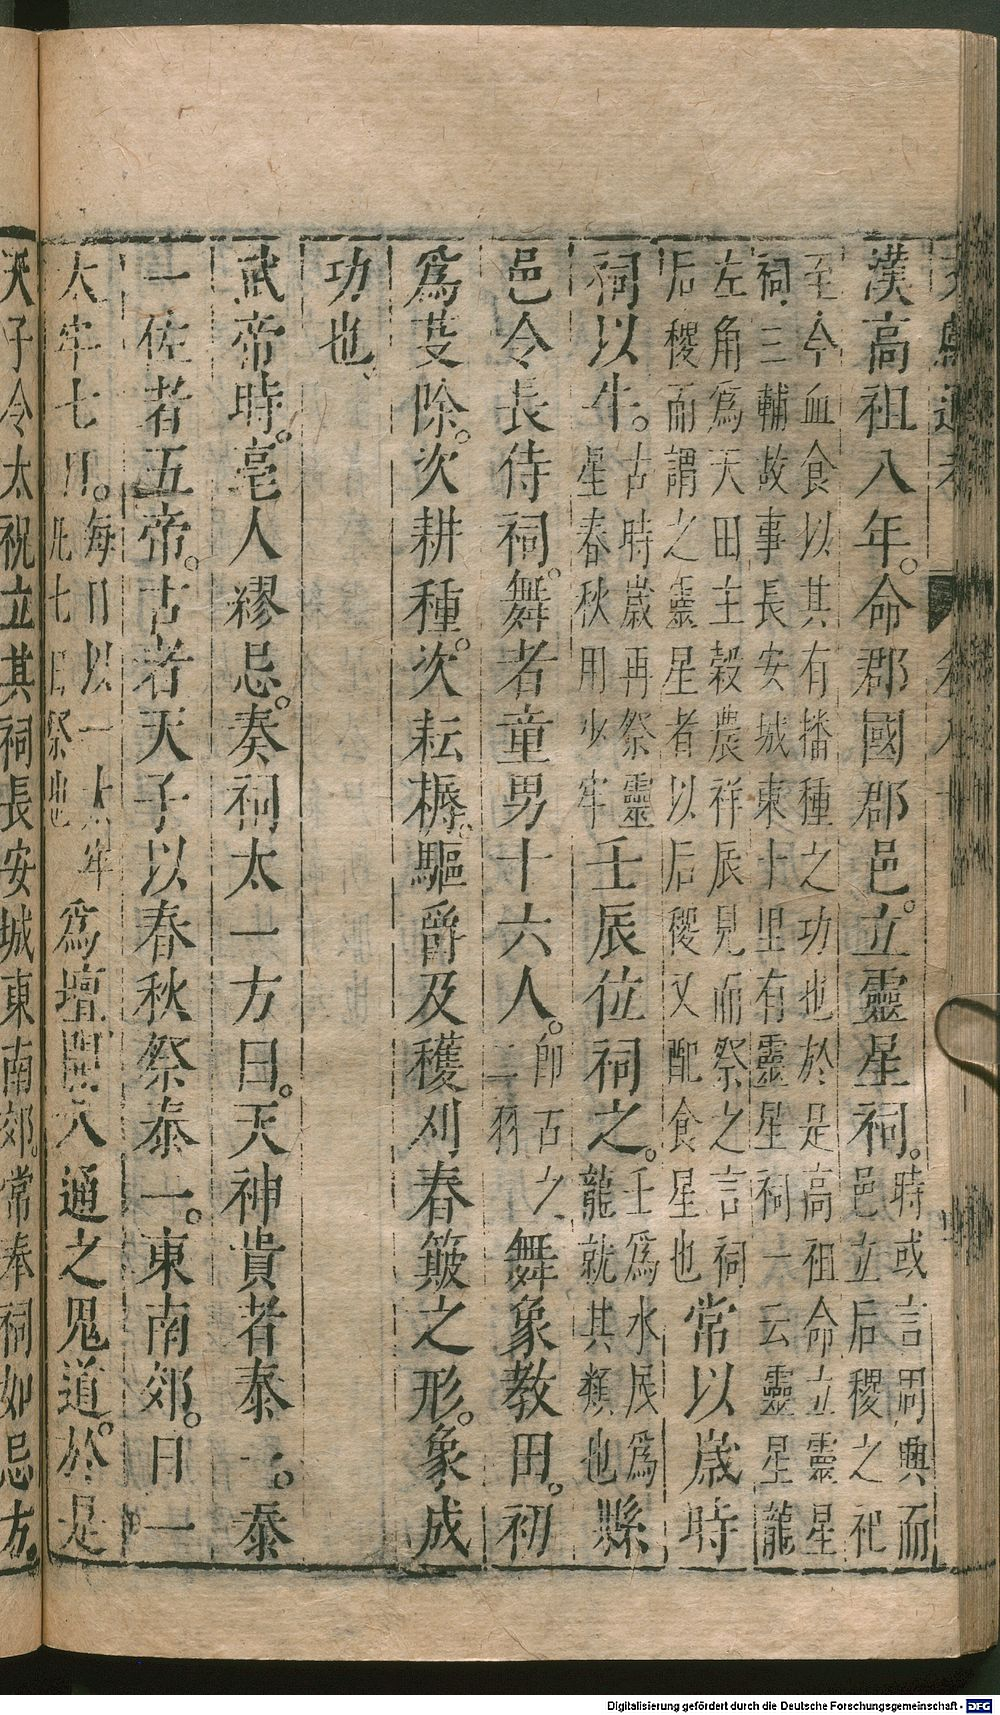 漢高祖八年。命郡國郡邑。立靈星祠。時或言周興而邑立后稷之祀
至今血食以其有播種之功也於是高祖命立靈星祠三輔故事長安城東十里有靈星祠一云靈星龍
左角爲天田主穀農祥辰見而祭之言祠后稷而謂之靈星者以后稷又配食星也常以歲時
祠以牛。古時歲再祭靈星春秋用少牢壬辰位祠之。壬爲水辰爲龍就其類也縣
邑令長侍祠。舞者童男十六人。卽古之二羽舞象教田。初
爲芟除。次耕種。次耘耨。驅爵及穫刈春簸之形。象成
功也
武帝時。亳人繆忌。奏祠太一方曰。天神貴者泰一。泰
一佐者五帝。古者天子以春秋祭泰一。東南郊。日一
太牢七日。每日以一太牢凡七日祭也爲壇開八通之鬼道。於是
天子令太祝立其祠長安城東南郊。常奉祠如忌方。
Digitalisierung gefördert durch die Deutsche Forschungsgemeinschaft - DFG